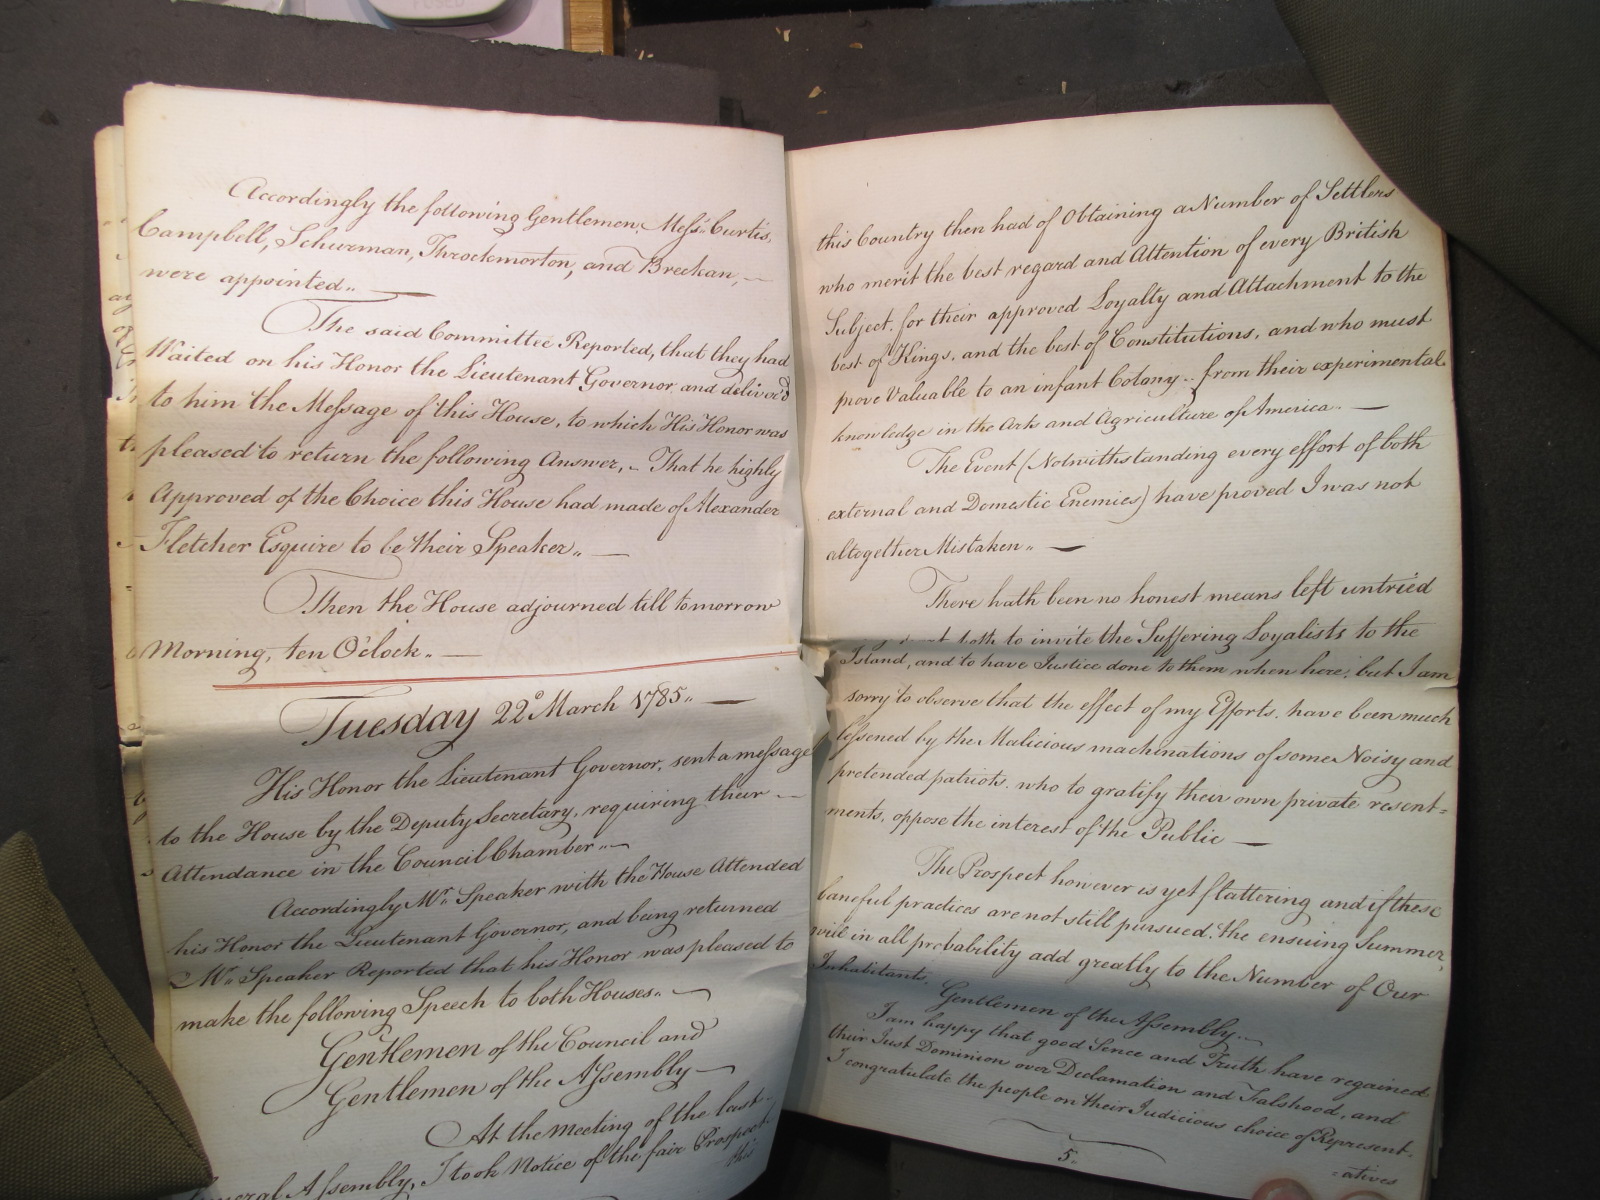 Accordingly the following Gentlemen, Messrs. Curtis,
Campbell, Schurman, Throckmorton, and Breekan, —
were appointed. —
The said Committee Reported, that they had
Waited on his Honor the Lieutenant Governor and deliver'd
to him the Message of this House, to which His Honor was
pleased to return the following Answer, – That he highly
Approved of the Choice this House had made of Alexander
Fletcher Esquire to be their Speaker. —
Then the House adjourned till tomorrow
Morning, ten O'Clock. —
Tuesday 22d March 1785. —
His Honor the Lieutenant Governor, sent a message
to the House by the Deputy Secretary, requiring their —
Attendance in the Council Chamber. —
Accordingly Mr. Speaker with the House Attended
his Honor the Lieutenant Governor, and being returned
Mr. Speaker Reported that his Honor was pleased to
make the following Speech to both Houses. —
Gentlemen of the Council and
Gentlemen of the Assembly —
At the Meeting of the last
General Assembly, I took Notice of the fair Prospect
this
this Country then had of Obtaining a Number of Settlers
who merit the best regard and Attention of every British
Subject, for their approved Loyalty and Attachment to the
best of Kings, and the best of Constitutions, and who must
prove Valuable to an infant Colony, from their experimental
knowledge in the Arts and Agriculture of America. —
The Event (Notwithstanding every effort of both
external and Domestic Enemies) have proved I was not
altogether Mistaken. —
There hath been no honest means left untried
both to invite the Suffering Loyalists to the
Island, and to have Justice done to them when here; but I am
sorry to observe that the effect of my Efforts, have been much
lessened by the Malicious machinations of some Noisy and
pretended patriots, who to gratify their own private resent=
ments, oppose the interest of the Public —
The Prospect however is yet flattering and if these
baneful practices are not still pursued, the ensuing Summer,
will in all probability add greatly to the Number of Our
Inhabitants.
Gentlemen of the Assembly. —
I am happy that good Sence and Truth have regained
their Just Dominion over Declamation and Falshood, and
I congratulate the people on their Judicious choice of Represent-
=atives
5.